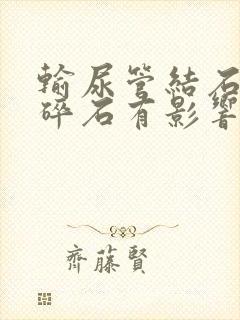 輸尿管結石
碎石有影響
齊藤賢